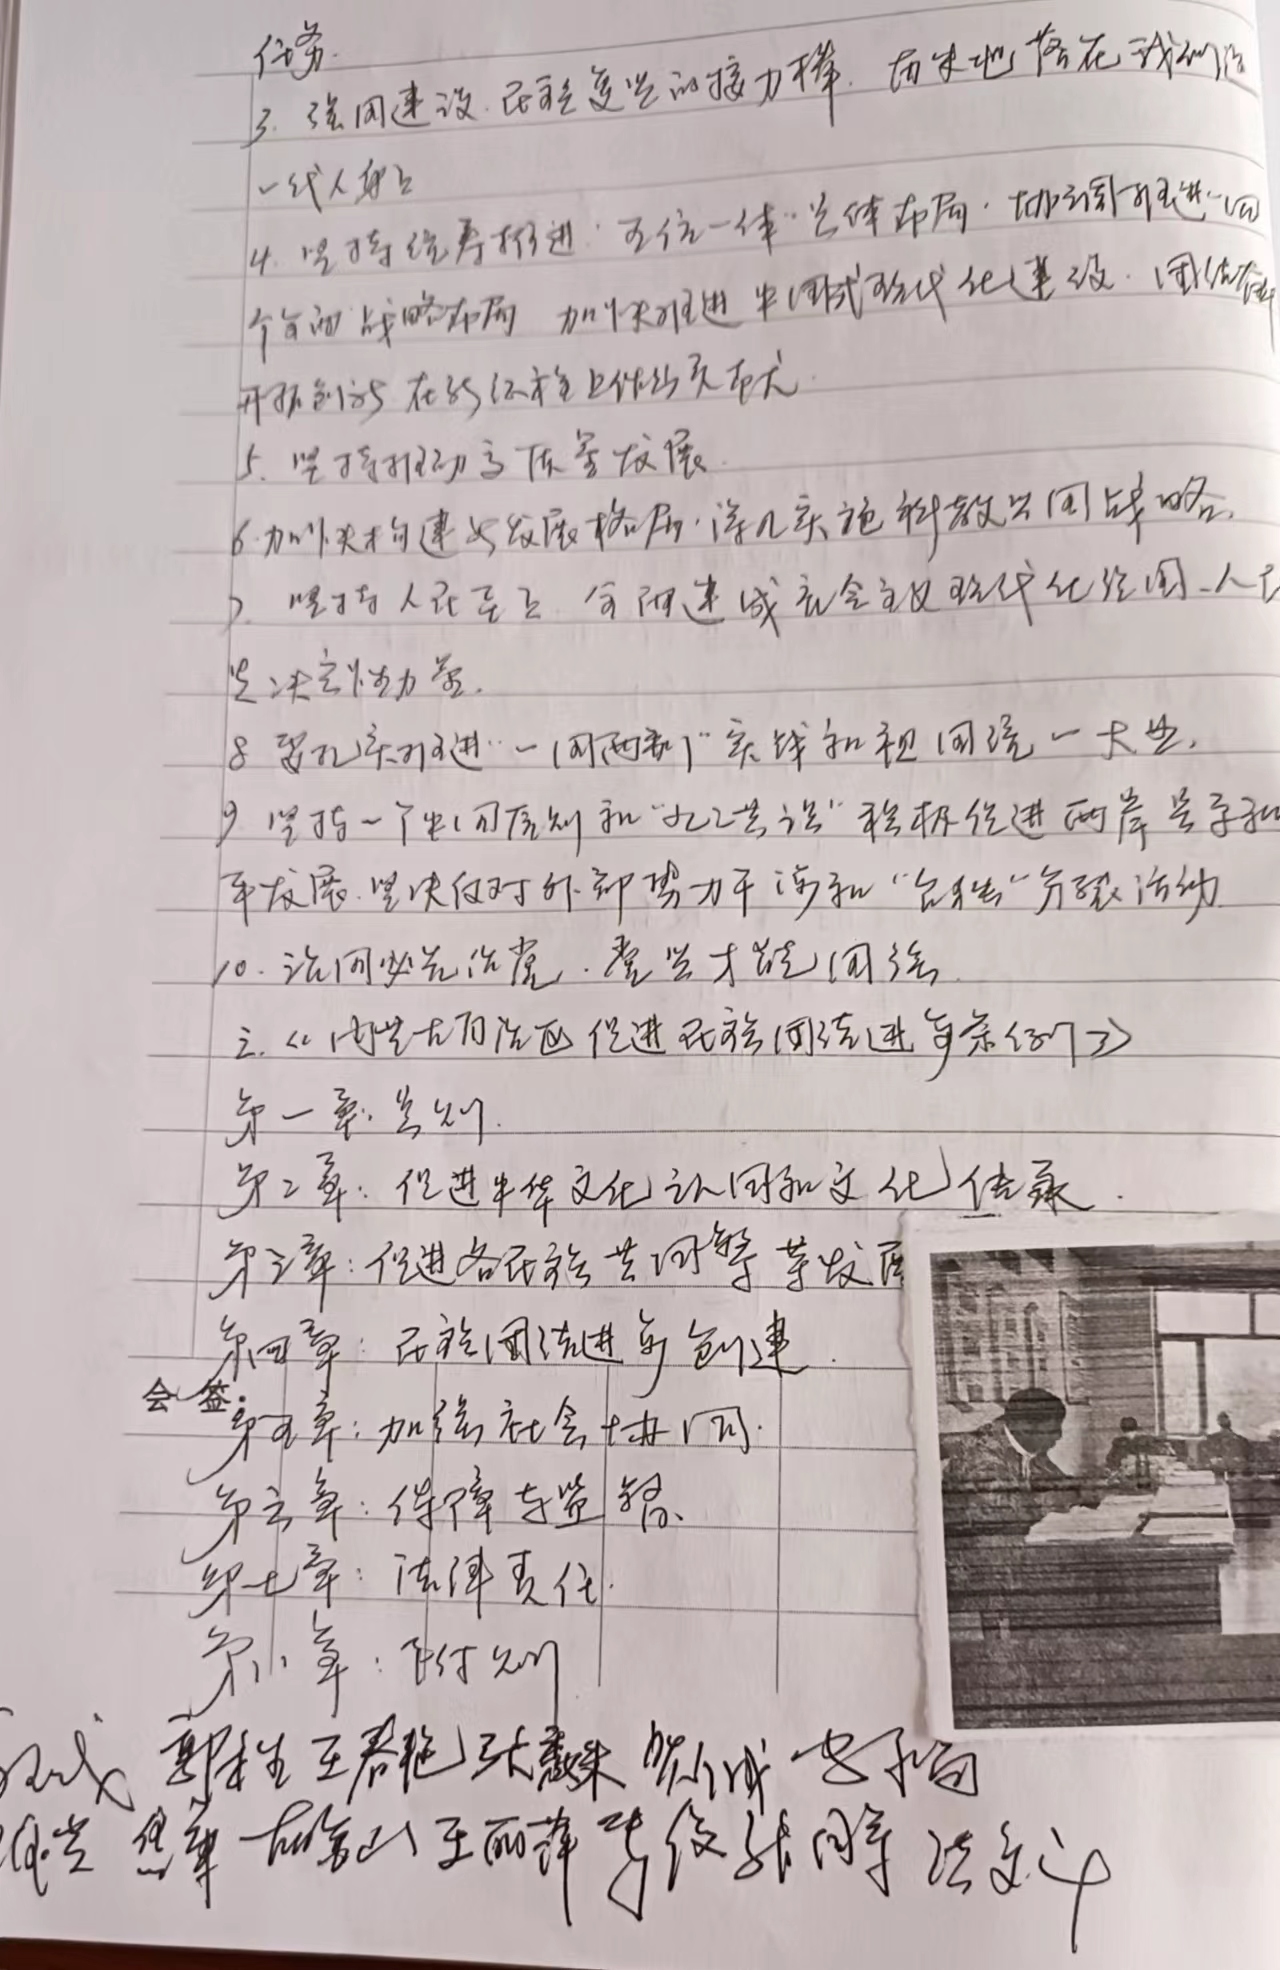 任务.
3. 强国建设.民族复兴的接力棒.历史地落在我们这
一代人身上
4. 坚持统筹推进"五位一体"总体布局.协调推进"四
个全面"战略布局 加快推进中国式现代化建设.团结奋斗
开拓创新 在新征程上作出贡献.
5. 坚持推动高质量发展.
6. 加快构建新发展格局.深入实施科教兴国战略.
7. 坚持人民至上.全面建成社会主义现代化强国.人民
是决定性力量.
8 要扎实推进"一国两制"实践和祖国统一大业.
9 坚持一个中国原则和"九二共识"积极促进两岸关系和
平发展.坚决反对外部势力干涉和"台独"分裂活动
10. 治国必先治党.党兴才能国强.
三.《内蒙古自治区促进民族团结进步条例》
第一章:总则.
第二章:促进中华文化认同和文化传承.
第三章:促进各民族共同繁荣发展
第四章:民族团结进步创建.
会 签:
第五章:加强社会协同.
第六章:保障与监督.
第七章:法律责任.
第八章:附则
王春艳
王丽萍